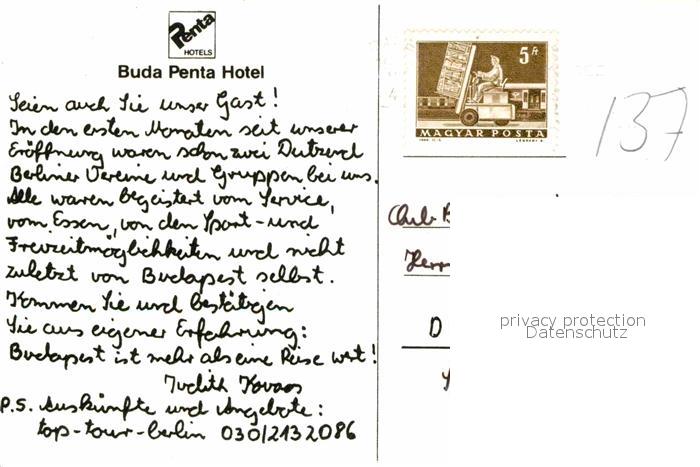 Penta
HOTELS
Buda Penta Hotel
Seien auch Sie unser Gast!
In den ersten Monaten seit unserer
Eröffnung waren schon zwei Dutzend
Berliner Vereine und Gruppen bei uns.
Alle waren begeistert vom Service,
vom Essen, von den Sport- und
Freizeitmöglichkeiten und nicht
zuletzt von Budapest selbst.
Kommen Sie und bestätigen
Sie aus eigener Erfahrung:
Budapest ist mehr als eine Reise wert!
Judith Kovacs
P.S. Auskünfte und Angebote:
top-tour-berlin 030/2132086
5 Ft
MAGYAR POSTA
137
Club
Herr
D
privacy protection
Datenschutz